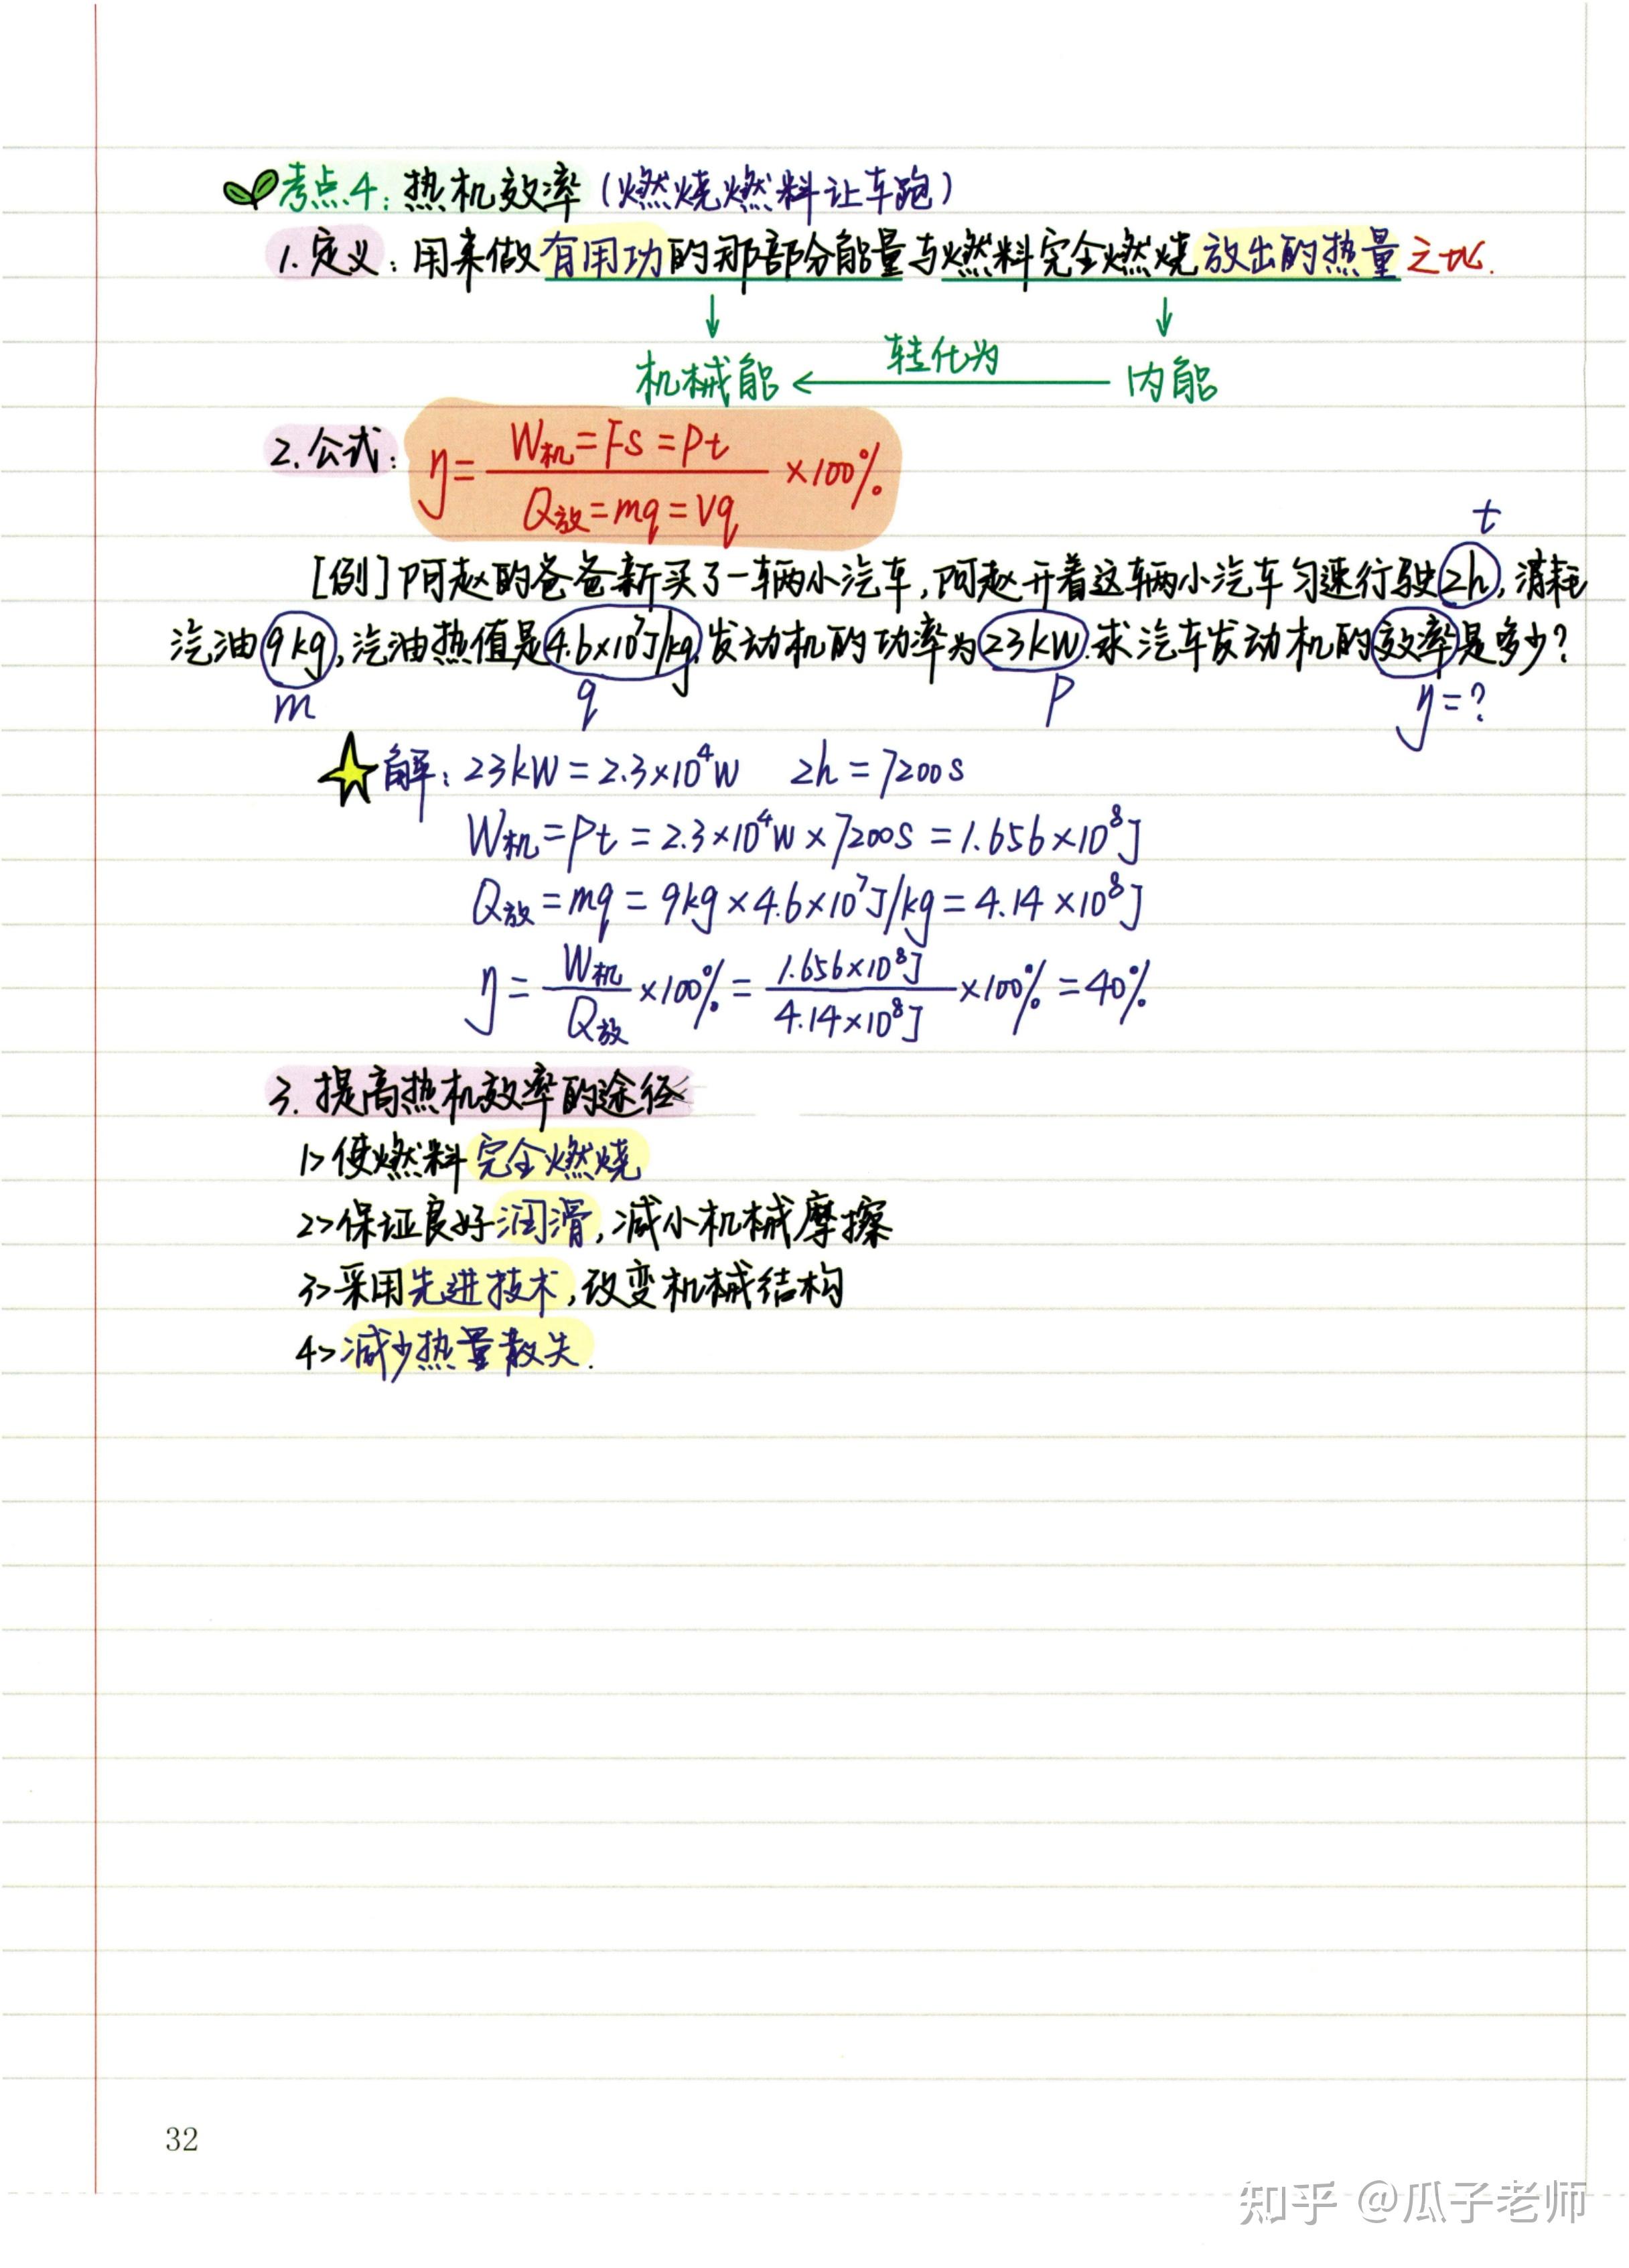 考点4：热机效率（燃烧燃料让车跑）
1.定义：用来做有用功的那部分能量与燃料完全燃烧放出的热量之比.
↓ ↓
机械能 ← 转化为 内能
2.公式：η = (W机=Fs=Pt)/(Q放=mq=Vq) ×100%
t
[例]阿赵的爸爸新买了一辆小汽车,阿赵开着这辆小汽车匀速行驶2h,消耗
汽油9kg,汽油热值是4.6×10⁷J/kg,发动机的功率为23kW.求汽车发动机的效率是多少?
m q P η=?
解：23kW=2.3×10⁴W 2h=7200s
W机=Pt=2.3×10⁴W×7200s=1.656×10⁸J
Q放=mq=9kg×4.6×10⁷J/kg=4.14×10⁸J
η=W机/Q放×100%=1.656×10⁸J/4.14×10⁸J×100%=40%
3.提高热机效率的途径
1>使燃料完全燃烧
2>保证良好润滑,减小机械摩擦
3>采用先进技术,改变机械结构
4>减少热量散失.
32
知乎 @瓜子老师